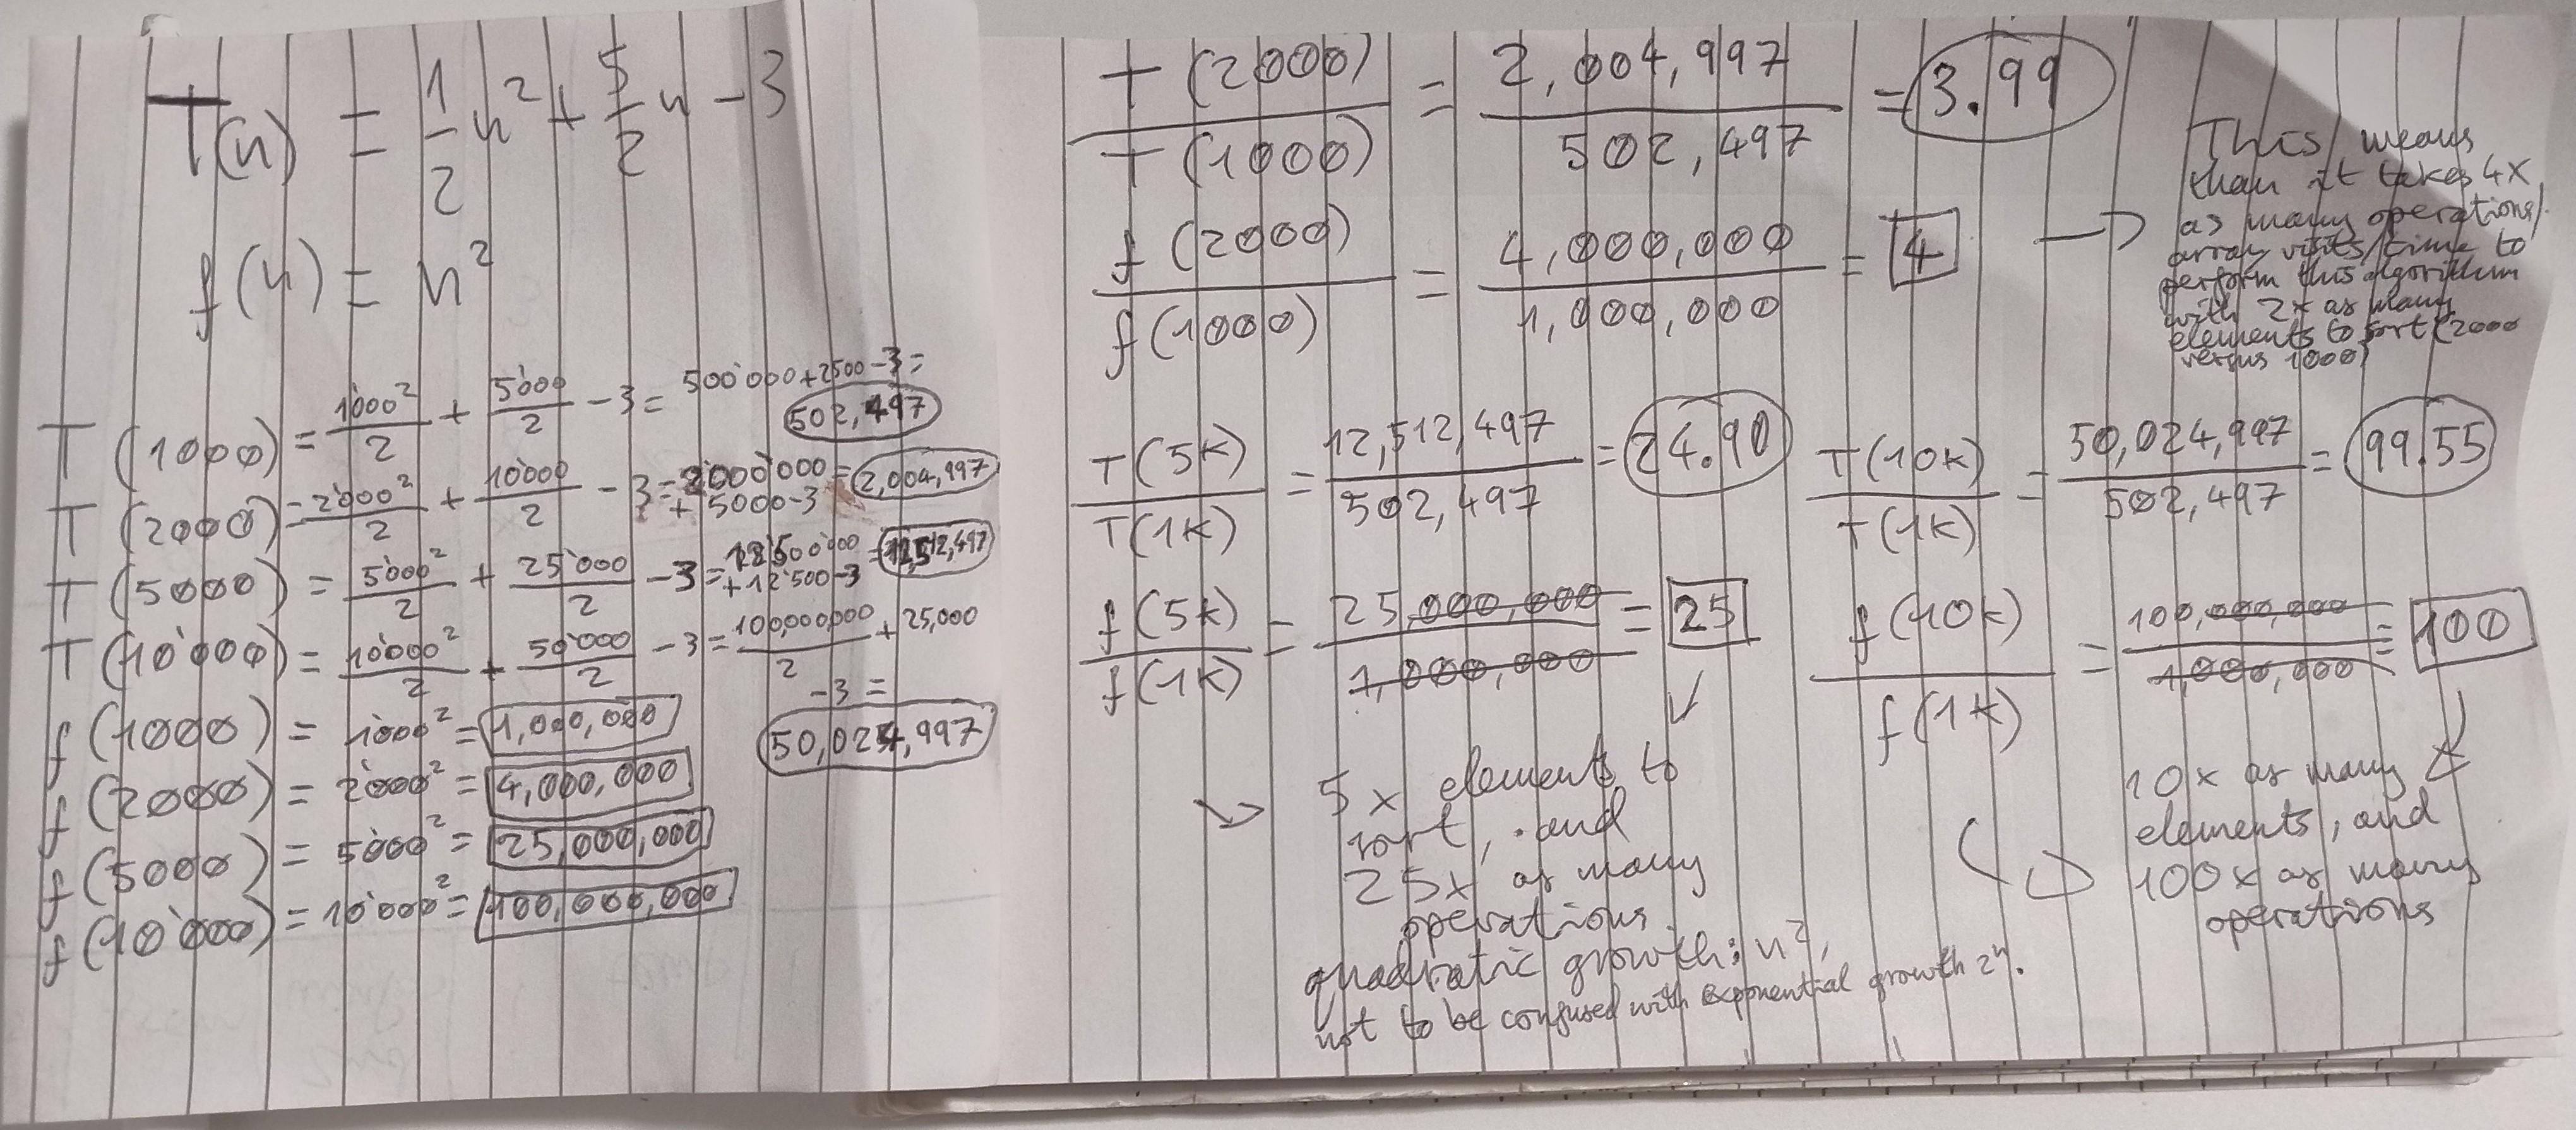 T(n) = 1/2 n² + 5/2 n - 3
f(n) = n²
T(1000) = 1000²/2 + 5'000/2 - 3 = 500'000 + 2500 - 3 =
502,497
T(2000) = 2'000²/2 + 10'000/2 - 3 = 2'000'000 + 5000 - 3 = 2,004,997
T(5000) = 5'000²/2 + 25'000/2 - 3 = 12'500'000 + 12'500 - 3 = 12,512,497
T(10'000) = 10'000²/2 + 50'000/2 - 3 = 100,000,000/2 + 25,000
- 3 =
50,024,997
f(1000) = 1'000² = 1,000,000
f(2000) = 2'000² = 4,000,000
f(5000) = 5'000² = 25,000,000
f(10'000) = 10'000² = 100,000,000
T(2000)/T(1000) = 2,004,997/502,497 = 3.99
f(2000)/f(1000) = 4,000,000/1,000,000 = 4 →
This means
than it takes 4x
as many operations/
array visits/time to
perform this algorithm
with 2x as many
elements to sort (2000
versus 1000)
T(5k)/T(1k) = 12,512,497/502,497 = 24.90
f(5k)/f(1k) = 25,000,000/1,000,000 = 25
5x elements to
sort, and
25x as many
operations
T(10k)/T(1k) = 50,024,997/502,497 = 99.55
f(10k)/f(1k) = 100,000,000/1,000,000 = 100
10x as many
elements, and
100x as many
operations
quadratic growth: n²,
not to be confused with exponential growth 2ⁿ.